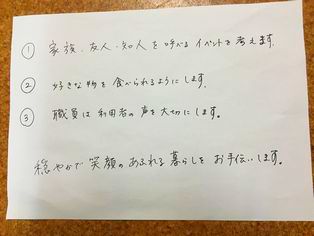 ① 家族、友人・知人を呼べるイベントを考えます。
② 好きな物を食べられるようにします。
③ 職員は利用者の声を大切にします。
穏やかで笑顔のあふれる暮らしをお手伝いします。